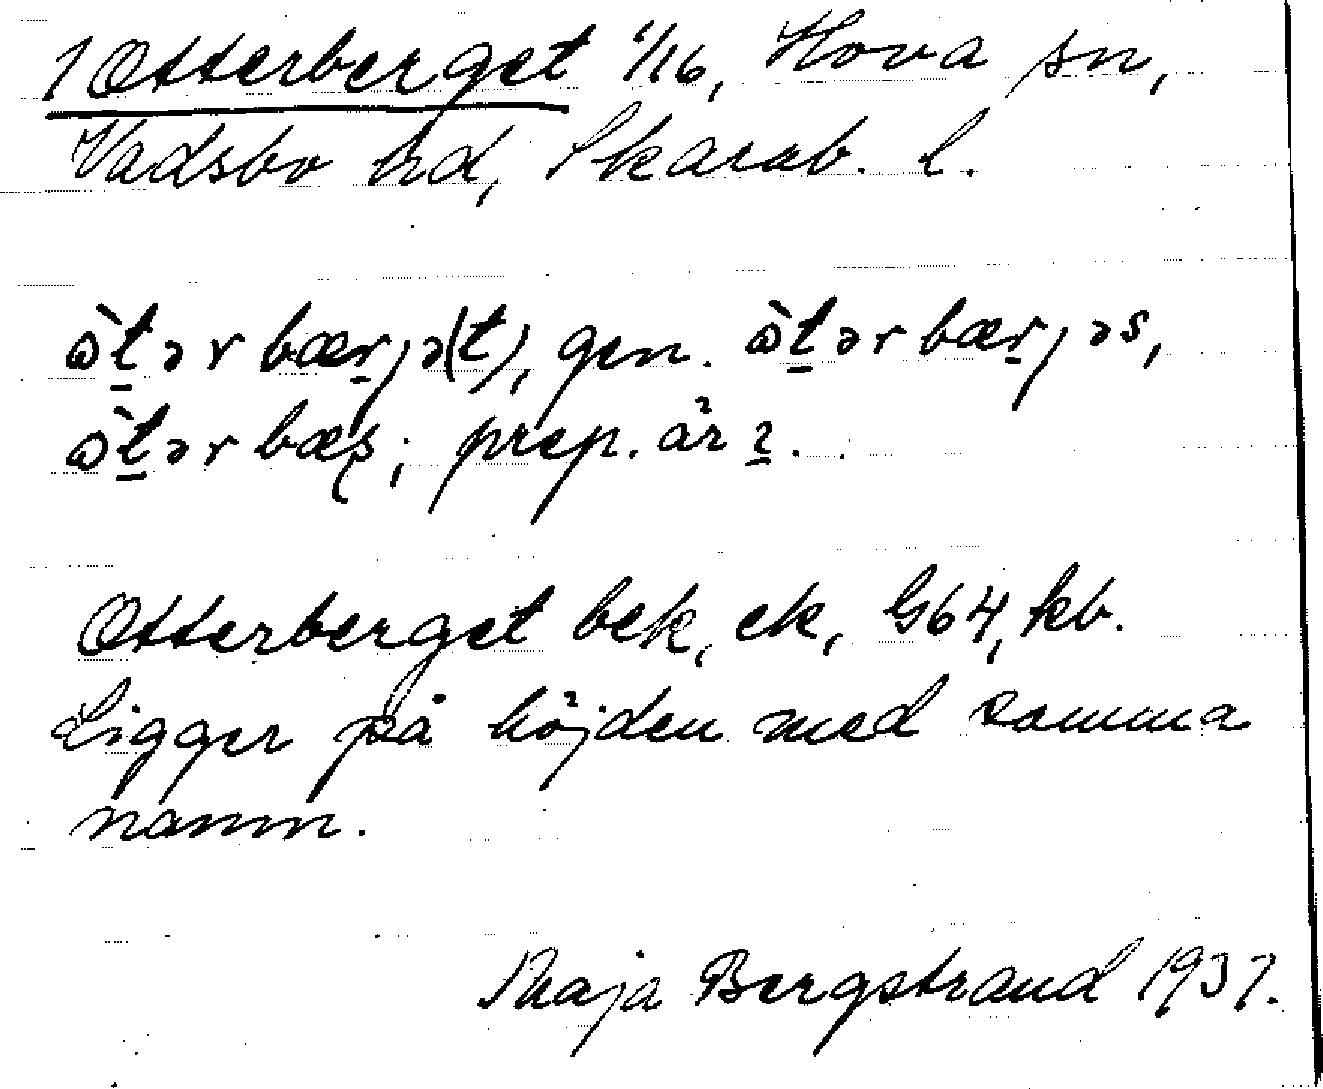 1 Otterberget 1/16, Hova sn,
Vadsbo hd, Skarab. l.
ὼt̲ər bær̲jə(t), gen. ὼt̲ər bær̲jəs,
ὼt̲ər bæʂ; prep. år 2̲.
Otterberget bek, ek, G64, kb.
Ligger på höjden med samma
namn.
Maja Bergstrand 1937.